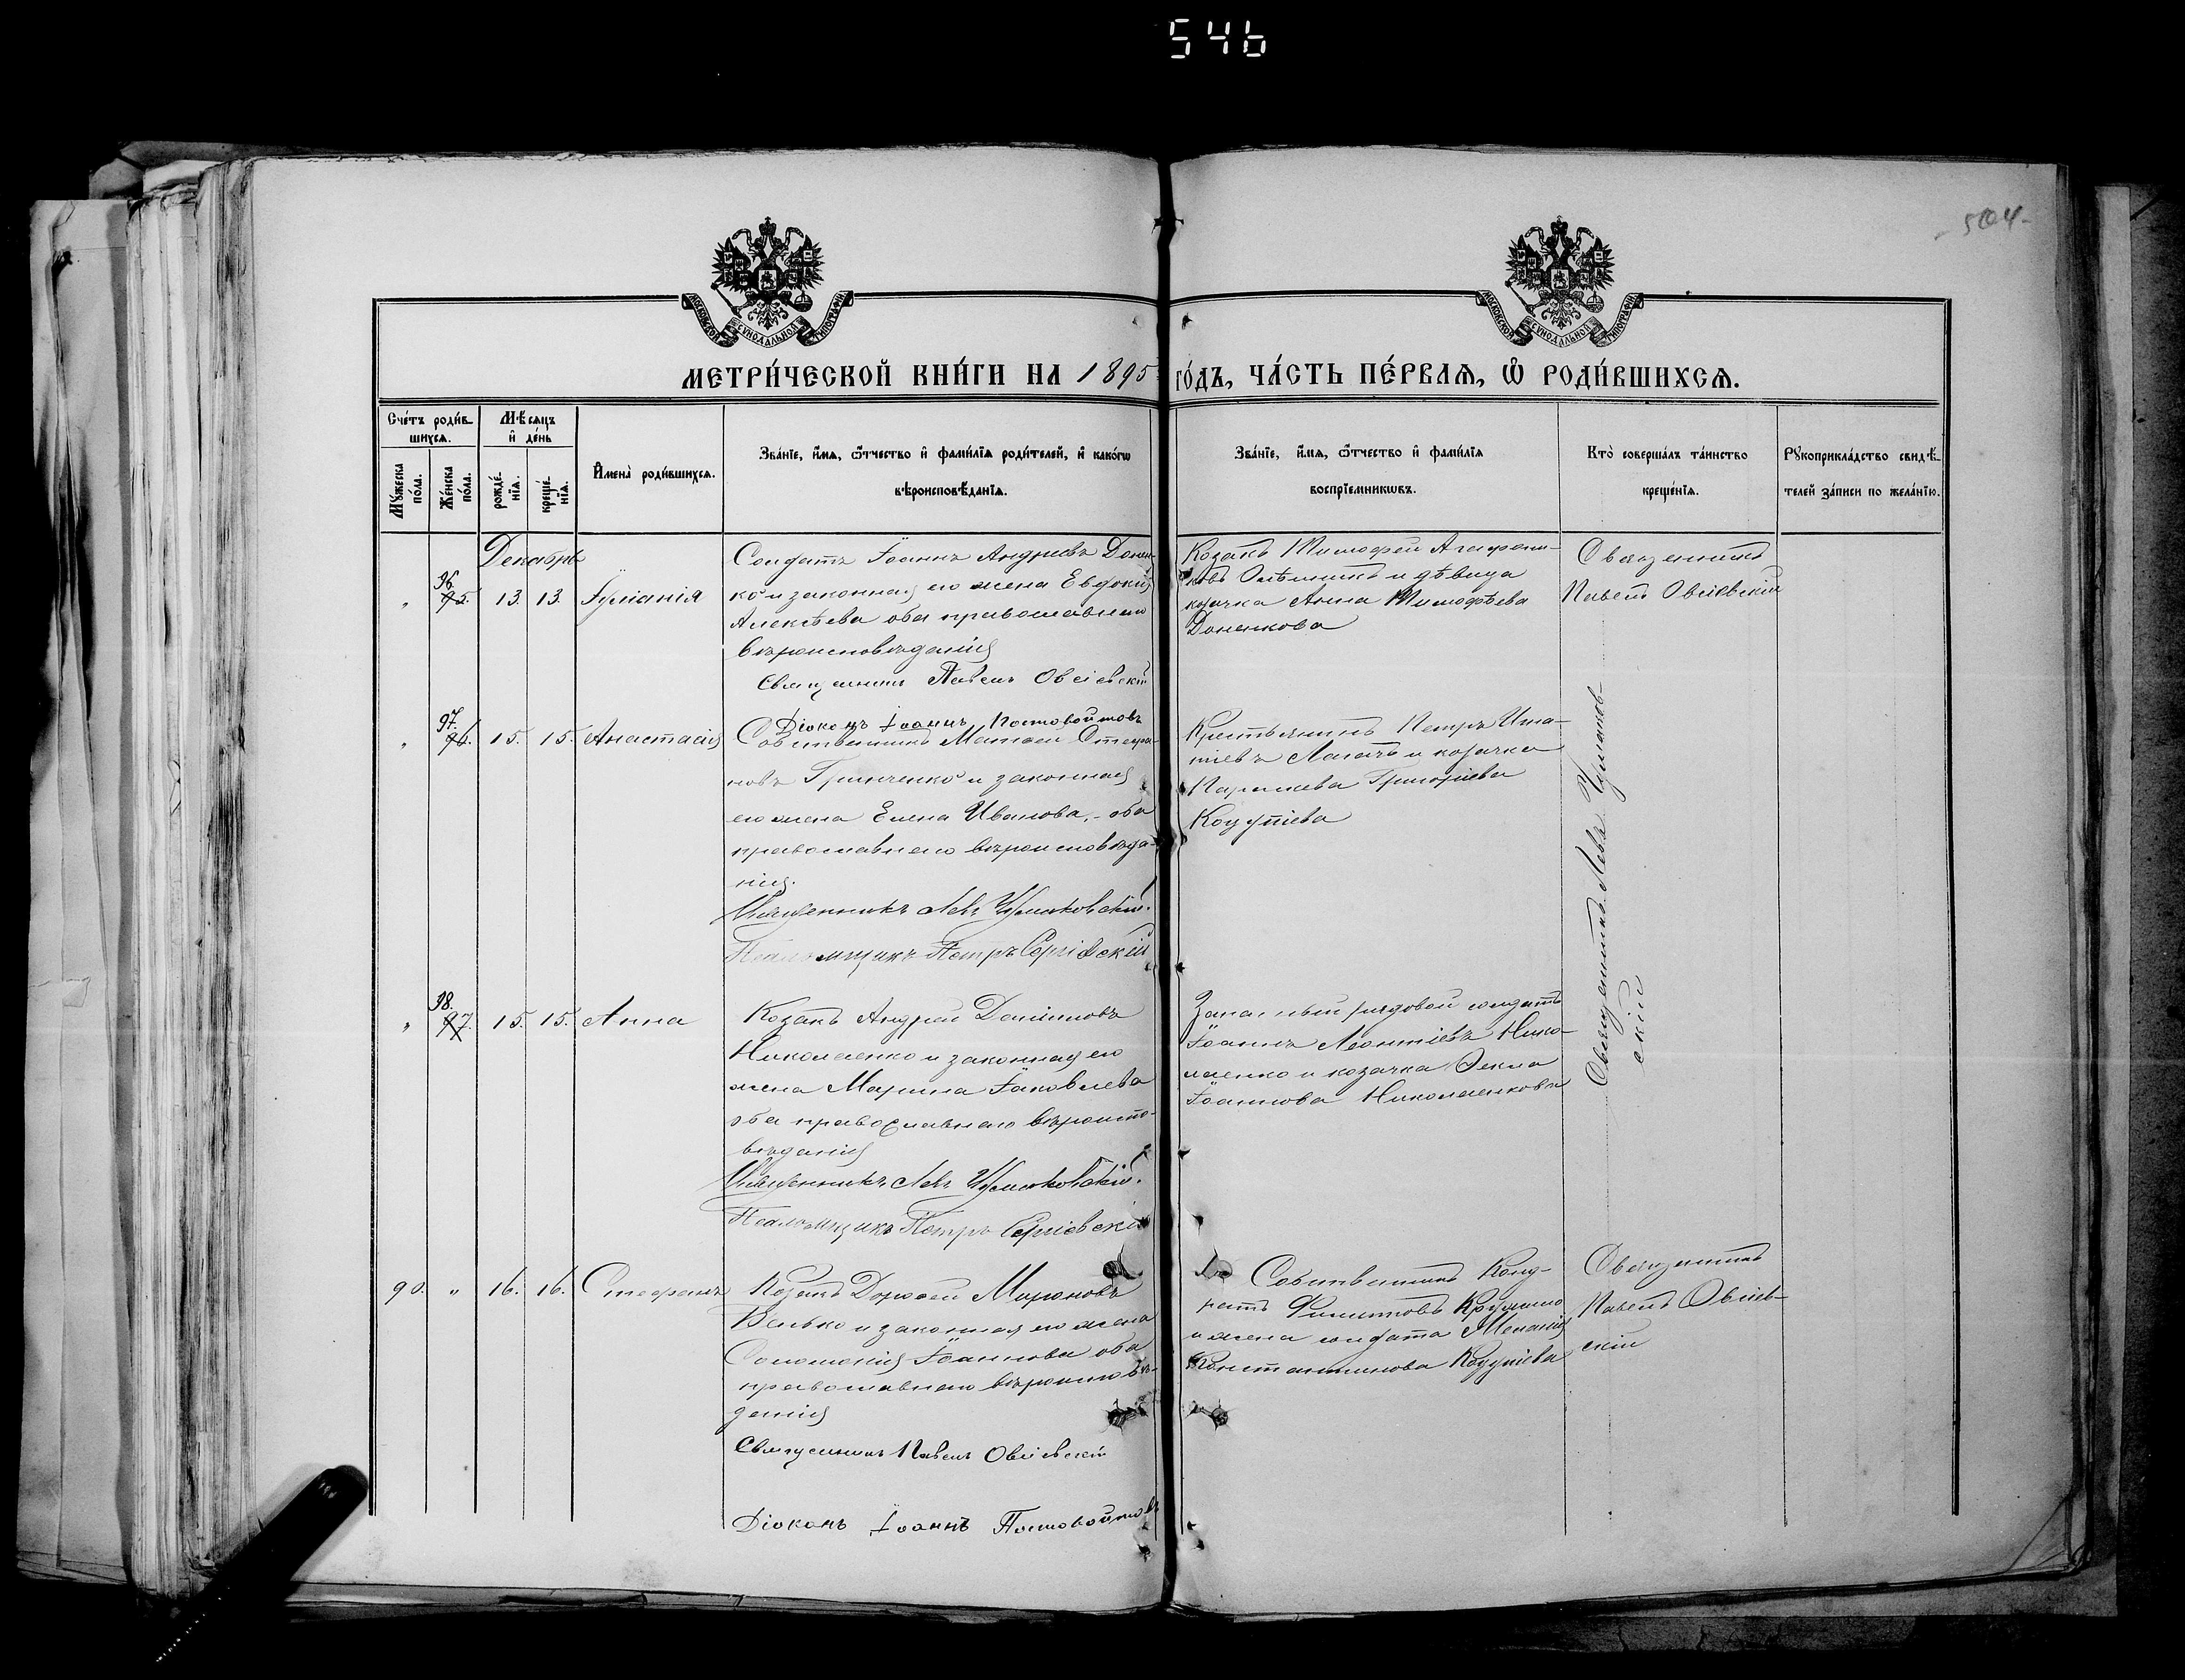 546
504
МОСКОВСКОЙ СѴНОДАЛЬНОЙ ТИПОГРАФІИ
МОСКОВСКОЙ СѴНОДАЛЬНОЙ ТИПОГРАФІИ
МЕТРИ́ЧЕСКОЙ КНИ́ГИ НА 1895 ГО́ДЪ, ЧА́СТЬ ПЕ́РВАѦ, Ѽ РОДИ́ВШИХСѦ.
Сче́тъ роди́в-
шихсѧ.
Мꙋ́жеска по́ла.
Же́нска по́ла.
Мѣ́сѧцъ
и҆ де́нь
рожде́-нїѧ.
креще́-нїѧ.
И҆мена̀ роди́вшихсѧ.
Зва́нїе, и҆́мѧ, ѻ҆́тчество и҆ фами́лїѧ роди́телей, и҆ како́гѡ
вѣроисповѣ́данїѧ.
Зва́нїе, и҆́мѧ, ѻ҆́тчество и҆ фами́лїѧ
воспрїе́мникѡвъ.
Кто̀ соверша́лъ та́инство
креще́нїѧ.
Рꙋкоприкла́дство свидѣ́-
телей за́писи по жела́нїю.
Декабрь
„ 96. 95. 13. 13. Іуліанія
Солдатъ Іоаннъ Андреевъ Донен-
ко и законная его жена Евдокія
Алексѣева оба православнаго
вѣроисповѣданія
Священникъ Павелъ Овсіевскій
Діоконъ Іоаннъ Постовойтовъ
Козакъ Тимофей
и дѣвица
козачка Анна Тимофѣева
Доненкова
Священникъ
Павелъ Овсіевскій
„ 97. 96. 15. 15. Анастасія
Собственникъ Матфей Стефа-
новъ Гринченко и законная
его жена Елена Иванова, - оба
православнаго вѣроисповѣда-
нія.
Священникъ Левъ Чумаковскій.
Псаломщикъ Петръ Сергіевскій
Крестьянинъ Петръ Игна-
тіевъ и козачка
Григоріева
Священникъ Левъ Чумаков-
скій
„ 98. 97. 15. 15. Анна
Козакъ Андрей Даніиловъ
Николаенко и законная его
жена Марина Іаковлева
оба православнаго вѣроиспо-
вѣданія
Священникъ Левъ Чумаковскій.
Псаломщикъ Петръ Сергіевскій
Запасный рядовой солдатъ
Іоаннъ Леонтіевъ Нико-
лаенко и козачка Өекла
Іоаннова Николаенкова
90. „ 16. 16. Стефанъ
Козакъ Мироновъ
Велько и законная его жена
Соломонія Іоаннова оба
православнаго вѣроисповѣ-
данія
Священникъ Павелъ Овсіевскій
Діоконъ Іоаннъ Постовойтовъ
Собственникъ Конд-
ратъ Филиповъ
и жена солдата Меланія
Константинова
Священникъ
Павелъ Овсіев-
скій